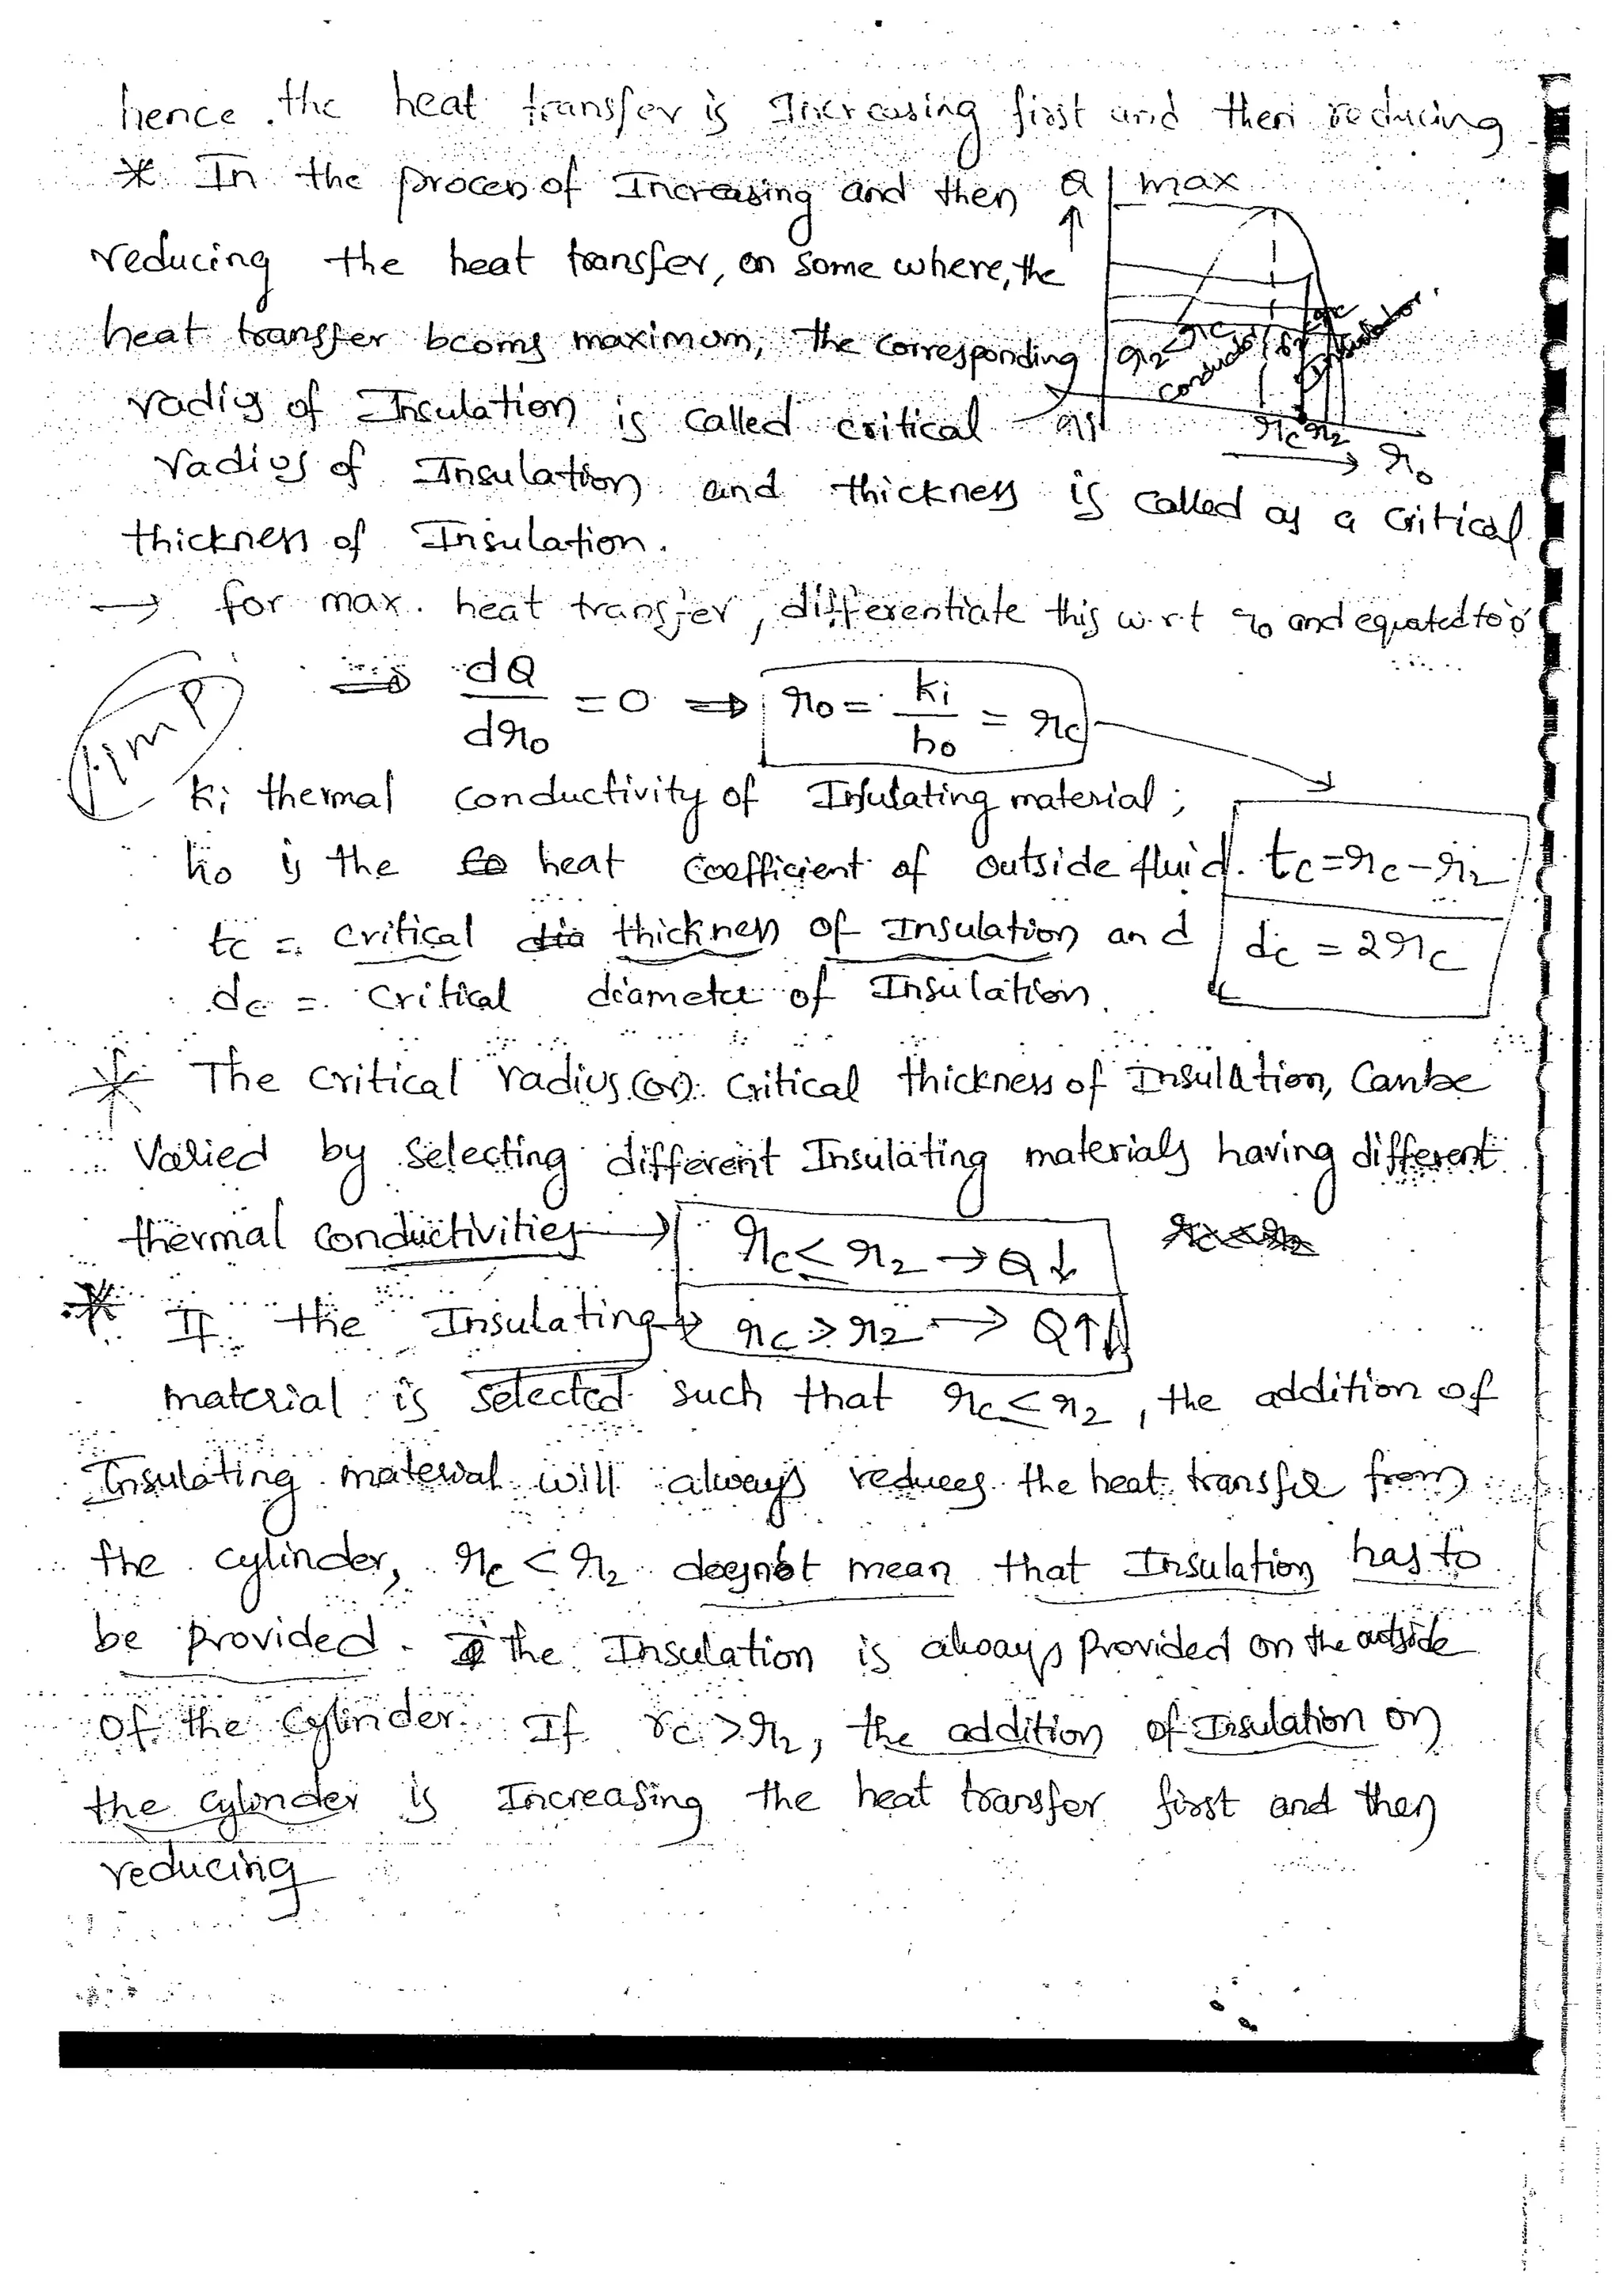 hence the heat transfer is Increasing first and then reducing
* In the process of Increasing and then
reducing the heat transfer, on some where, the
heat transfer bcoms maximum, the corresponding
radius of Insulation is called critical
radius of Insulation and thickness is called as a critical
thickness of Insulation.
Q max
↑
r2
rc r2
→ r0
→ for max. heat transfer, differentiate this w.r.t r0 and equated to 0
⇒ dQ/dr0 = 0 ⇒ r0 = ki/h0 = rc
Imp
ki thermal conductivity of Insulating material;
h0 is the heat coefficient of outside fluid. tc = rc - r2
tc = critical thickness of Insulation and dc = 2rc
dc = critical diameter of Insulation.
* The critical radius (or) critical thickness of Insulation, Canbe
Varied by selecting different Insulating materials having different
thermal conductivities → rc ≤ r2 → Q↓
* If the Insulating → rc > r2 → Q↑↓
material is selected such that rc ≤ r2, the addition of
Insulating material will always reduces the heat transfer from
the cylinder, rc < r2 doesnot mean that Insulation has to
be provided. the Insulation is always provided on the outside
of the cylinder. If rc > r2, the addition of Insulation on
the cylinder is Increasing the heat transfer first and then
reducing